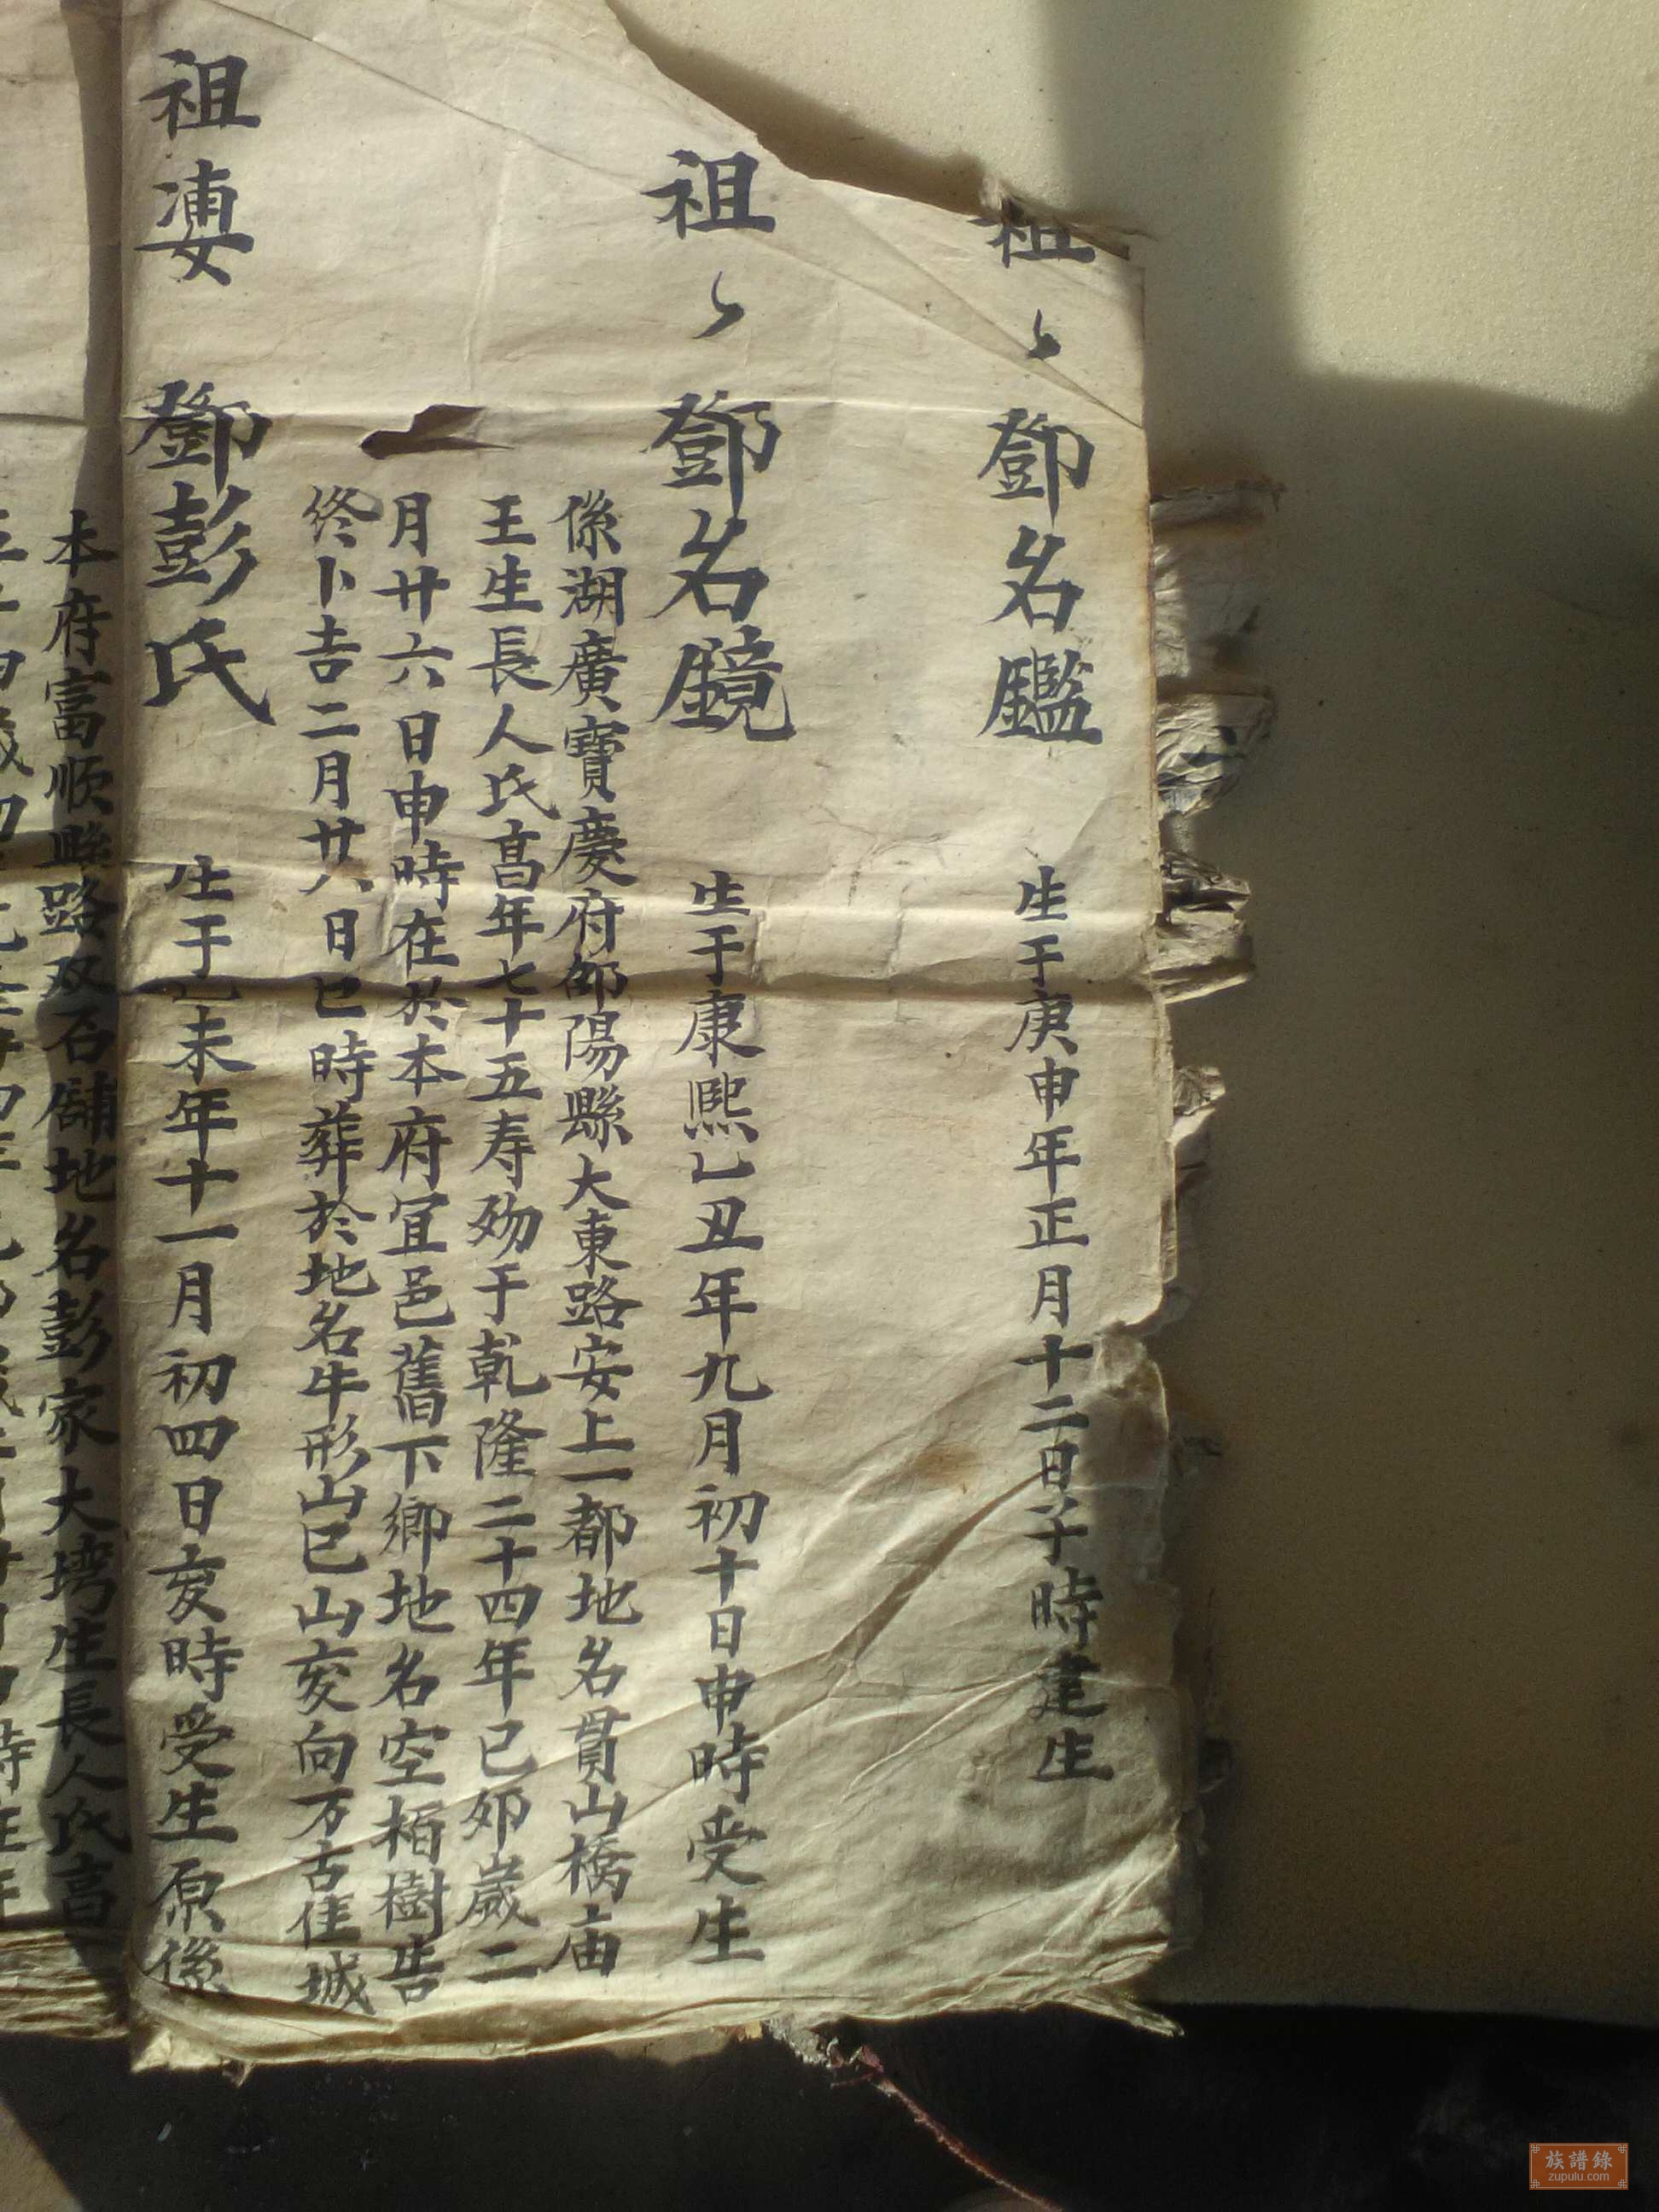 祖〻 鄧名鑑 生于庚申年正月十二日子時建生
祖〻 鄧名鏡 生于康熙乙丑年九月初十日申時受生
係湖廣寶慶府邵陽縣大東路安上一都地名貫山橋庙
王生長人氏髙年七十五寿殁于乾隆二十四年已卯歲二
月廿六日申時在於本府冝邑舊下鄉地名空栢樹告
終卜吉二月廿八日巳時葬於地名牛形山巳山亥向万古佳城
祖妻 鄧彭氏 生于乙未年十一月初四日亥時受生原係
本府富順縣路双石舖地名彭家大塆生長人氏髙
族譜錄
zupulu.com